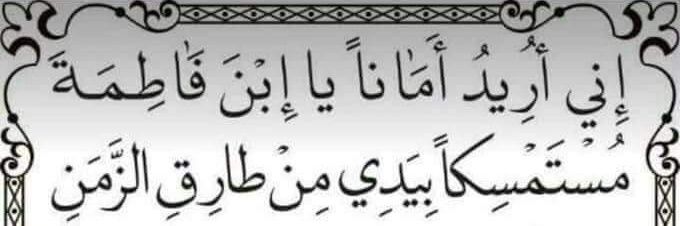 إِني أُرِيدُ أَمَاناً يا إِبْنَ فَاطِمَةَ
مُسْتَمْسِكاً بِيَدِي مِنْ طارِقِ الزَّمَنِ